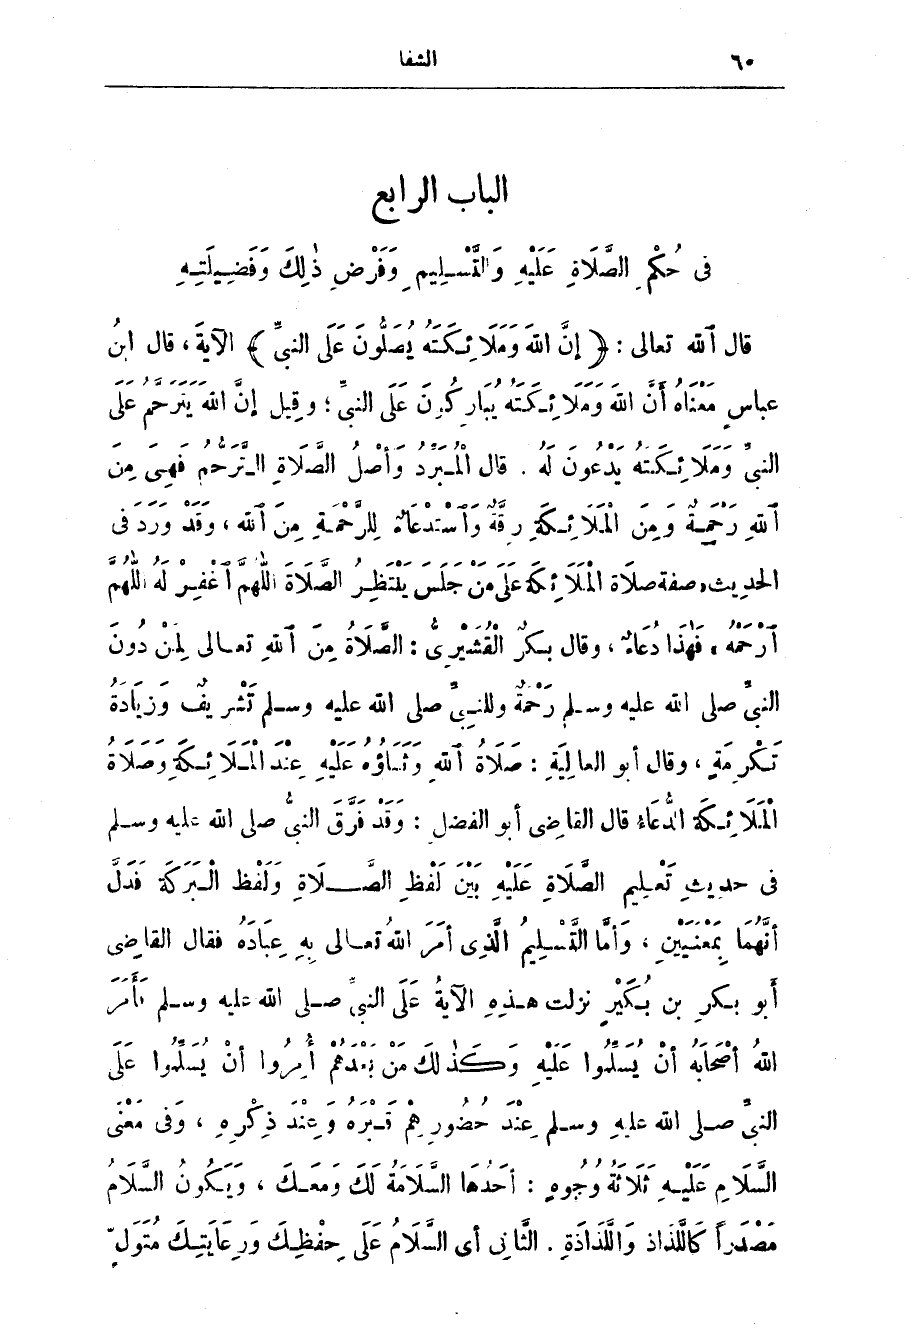 ٦٠ الشفا
الباب الرابع
فى حُكْمِ الصَّلَاةِ عَلَيْهِ وَالتَّسْلِيمِ وَفَرْضِ ذٰلِكَ وَفَضِيلَتِهِ
قال ٱلله تعالى : ﴿ إِنَّ اللهَ وَمَلَائِكَتَهُ يُصَلُّونَ عَلَى النبيِّ ﴾ الآيةَ ، قال ابنُ
عباسٍ مَعْنَاهُ أَنَّ اللهَ وَمَلَائِكَتَهُ يُبَارِكُونَ عَلَى النبيِّ ؛ وقيل إنَّ اللهَ يَتَرَحَّمُ عَلَى
النبيِّ وَمَلَائِكَتَهُ يَدْعُونَ لَهُ . قال الْمُبَرِّدُ وَأَصْلُ الصَّلَاةِ التَّرَحُّمُ فَهِىَ مِنَ
ٱللهِ رَحْمَةٌ وَمِنَ الْمَلَائِكَةِ رِقَّةٌ وَٱسْتِدْعَاءٌ لِلرَّحْمَةِ مِنَ ٱللهِ ، وَقَدْ وَرَدَ فى
الحديث صفة صلاة الْمَلَائِكَةِ عَلَى مَنْ جَلَسَ يَنْتَظِرُ الصَّلَاةَ اللّٰهُمَّ ٱغْفِرْ لَهُ اللّٰهُمَّ
ٱرْحَمْهُ ، فَهٰذَا دُعَاءٌ ، وقال بكرٌ الْقُشَيْرِىُّ : الصَّلَاةُ مِنَ ٱللهِ تعالى لِمَنْ دُونَ
النبيِّ صلى الله عليه وسلم رَحْمَةٌ وللنبيِّ صلى الله عليه وسلم تَشْرِيفٌ وَزِيَادَةُ
تَكْرِمَةٍ ، وقال أبو العالِيَةِ : صَلَاةُ ٱللهِ وَثَنَاؤُهُ عَلَيْهِ عِنْدَ الْمَلَائِكَةِ وَصَلَاةُ
الْمَلَائِكَةِ الدُّعَاءُ قال القاضِى أبو الفضل : وَقَدْ فَرَّقَ النبيُّ صلى الله عليه وسلم
فى حديثِ تَعْلِيمِ الصَّلَاةِ عَلَيْهِ بَيْنَ لَفْظِ الصَّلَاةِ وَلَفْظِ الْبَرَكَةِ فَدَلَّ
أَنَّهُمَا بِمَعْنَيَيْنِ ، وَأَمَّا التَّسْلِيمُ الَّذِى أَمَرَ اللهُ تعالى بِهِ عِبَادَهُ فقال القاضِى
أَبو بكرِ بن بُكَيْرٍ نزلت هذِهِ الآيةُ عَلَى النبيِّ صلى الله عليه وسلم فَأَمَرَ
اللهُ أَصْحَابَهُ أَنْ يُسَلِّمُوا عَلَيْهِ وَكَذٰلِكَ مَنْ بَعْدَهُمْ أُمِرُوا أَنْ يُسَلِّمُوا عَلَى
النبيِّ صلى الله عليه وسلم عِنْدَ حُضُورِهِمْ قَبْرَهُ وَعِنْدَ ذِكْرِهِ ، وَفى مَعْنَى
السَّلَامِ عَلَيْهِ ثَلَاثَةُ وُجُوهٍ : أحَدُهَا السَّلَامَةُ لَكَ وَمَعَكَ ، وَيَكُونُ السَّلَامُ
مَصْدَراً كَاللَّذَاذِ وَاللَّذَاذَةِ . الثَّانِى أى السَّلَامُ عَلَى حِفْظِكَ وَرِعَايَتِكَ مُتَوَلٍّ